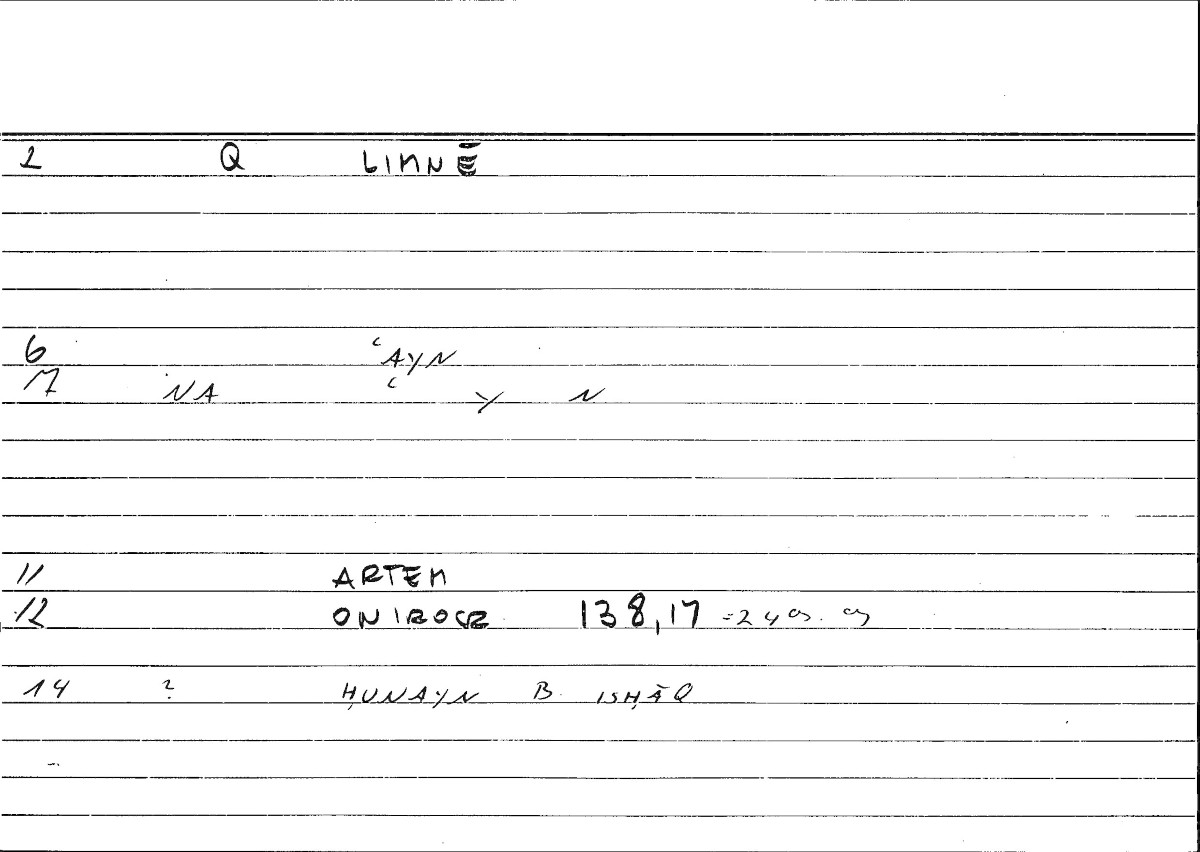 2 Q LIMNĒ
6 ʿAYN
7 NA ʿ Y N
11 ARTEM
12 ONIROCR 138,17
14 ? ḤUNAYN B. ISḤĀQ